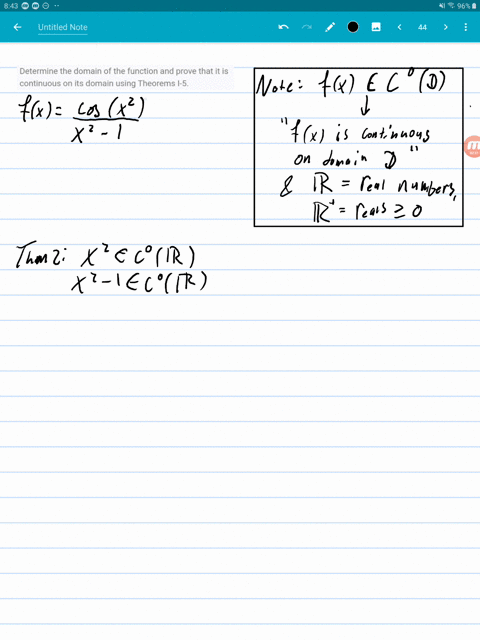 8:43
96%
Untitled Note
44
Determine the domain of the function and prove that it is
continuous on its domain using Theorems I-5.
f(x) = cos(x²) / x² - 1
Note: f(x) ∈ C⁰(D)
↓
"f(x) is continuous
on domain D"
& ℝ = real numbers,
ℝ⁺ = reals ≥ 0
Thm 2: x² ∈ C⁰(ℝ)
x² - 1 ∈ C⁰(ℝ)